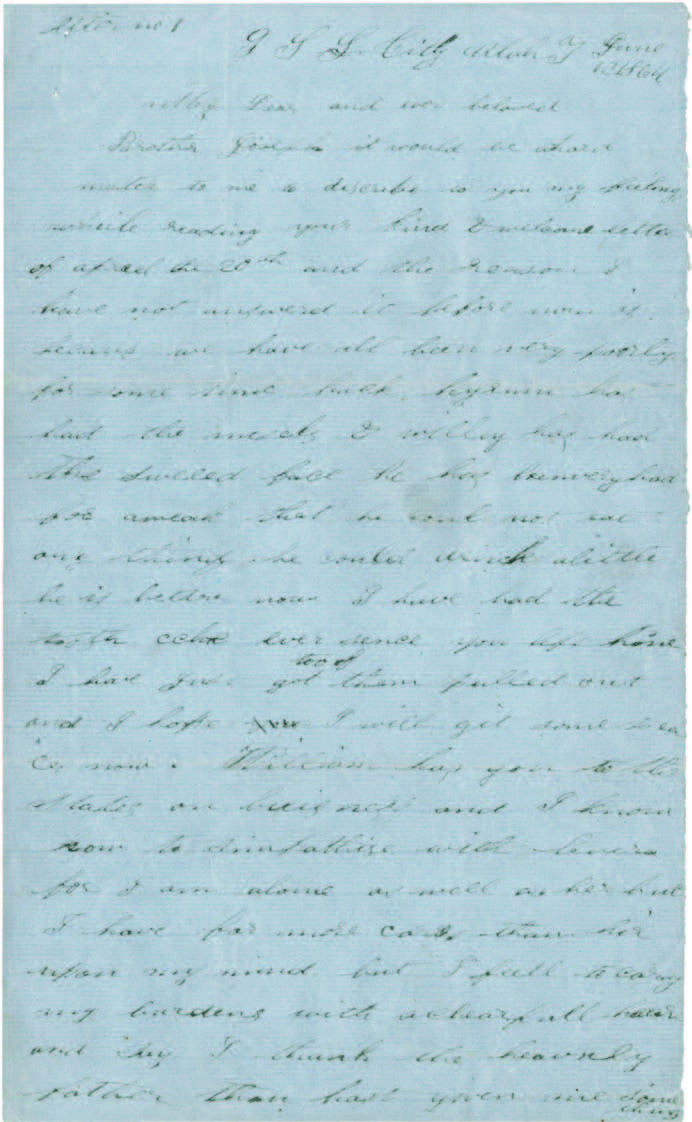 letter no 1
G S L City Utah T June
12 1864
Dear and ever beloved
Brother Joseph it would be ahard
matter to me to discribe to you my feelings
while reading your kind & welcome letter
of april the 20th and the reason I
have not answerd it before now is
becaus we have all been very poorly
for some time back hyrum has
had the mesels & willey has had
the sweled face he has been very bad
for aweak that he could not eat
any thing he could drink alittle
he is better now I have had the
tooth ache ever sence you left home
I have just got too of them pulled out
and I hope I will git some pea
ce now. William has gon to the
States on buisness and I know
how to simpathise with
for I am alone as well as her but
I have far more cares than her
upon my mind but I fell to cary
my burdens with achearfull heart
and say I thank the heavenly
father thou hast given me some
thing